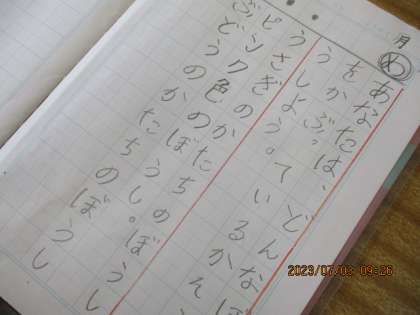 月
め
あなたは、どんなぼ
をかぶっているかん
うしよう。
うさぎのかたちのぼうし
ピンク色のぼうし。
ぶどうのかたちのぼうし
2023/07/03 09:26